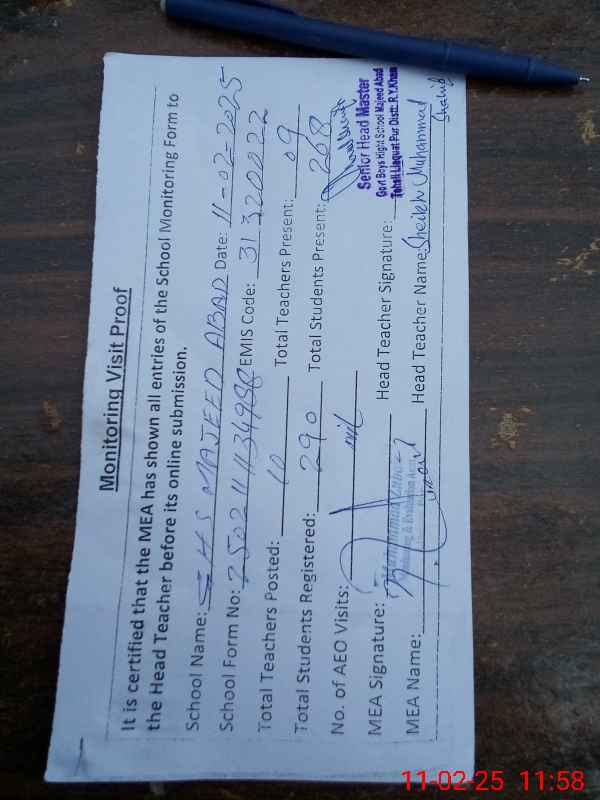 Monitoring Visit Proof
It is certified that the MEA has shown all entries of the School Monitoring Form to
the Head Teacher before its online submission.
School Name: GHS MAJEED ABAD Date: 11-02-2025
School Form No: EMIS Code: 31320022
Total Teachers Posted: 10 Total Teachers Present: 09
Total Students Registered: 290 Total Students Present: 268
No. of AEO Visits: nil
Senior Head Master
Govt Boys Hight School Majeed Abad
Tehsil Liaquat Pur Distt: R.Y.Khan
MEA Signature: Head Teacher Signature:
Muhammad
Monitoring & Evaluation
MEA Name: Head Teacher Name: Sheikh Muhammad
11-02-25 11:58